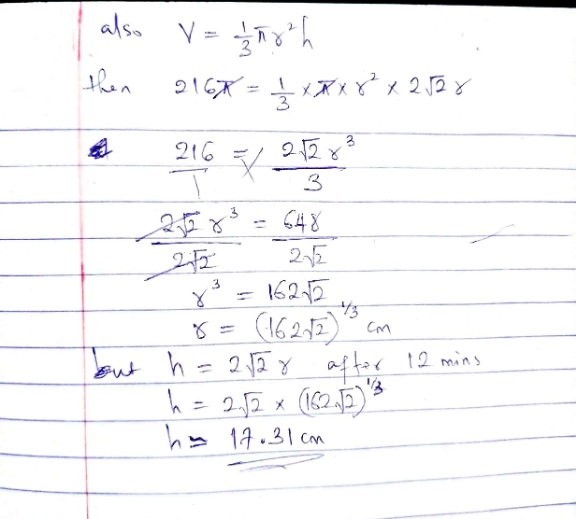 also V = 1/3 πr²h
then 216π = 1/3 × π × r² × 2√2 r
216/1 = 2√2 r³/3
2√2 r³/2√2 = 648/2√2
r³ = 162√2
r = (162√2)^1/3 cm
but h = 2√2 r after 12 mins
h = 2√2 × (162√2)^1/3
h = 17.31 cm